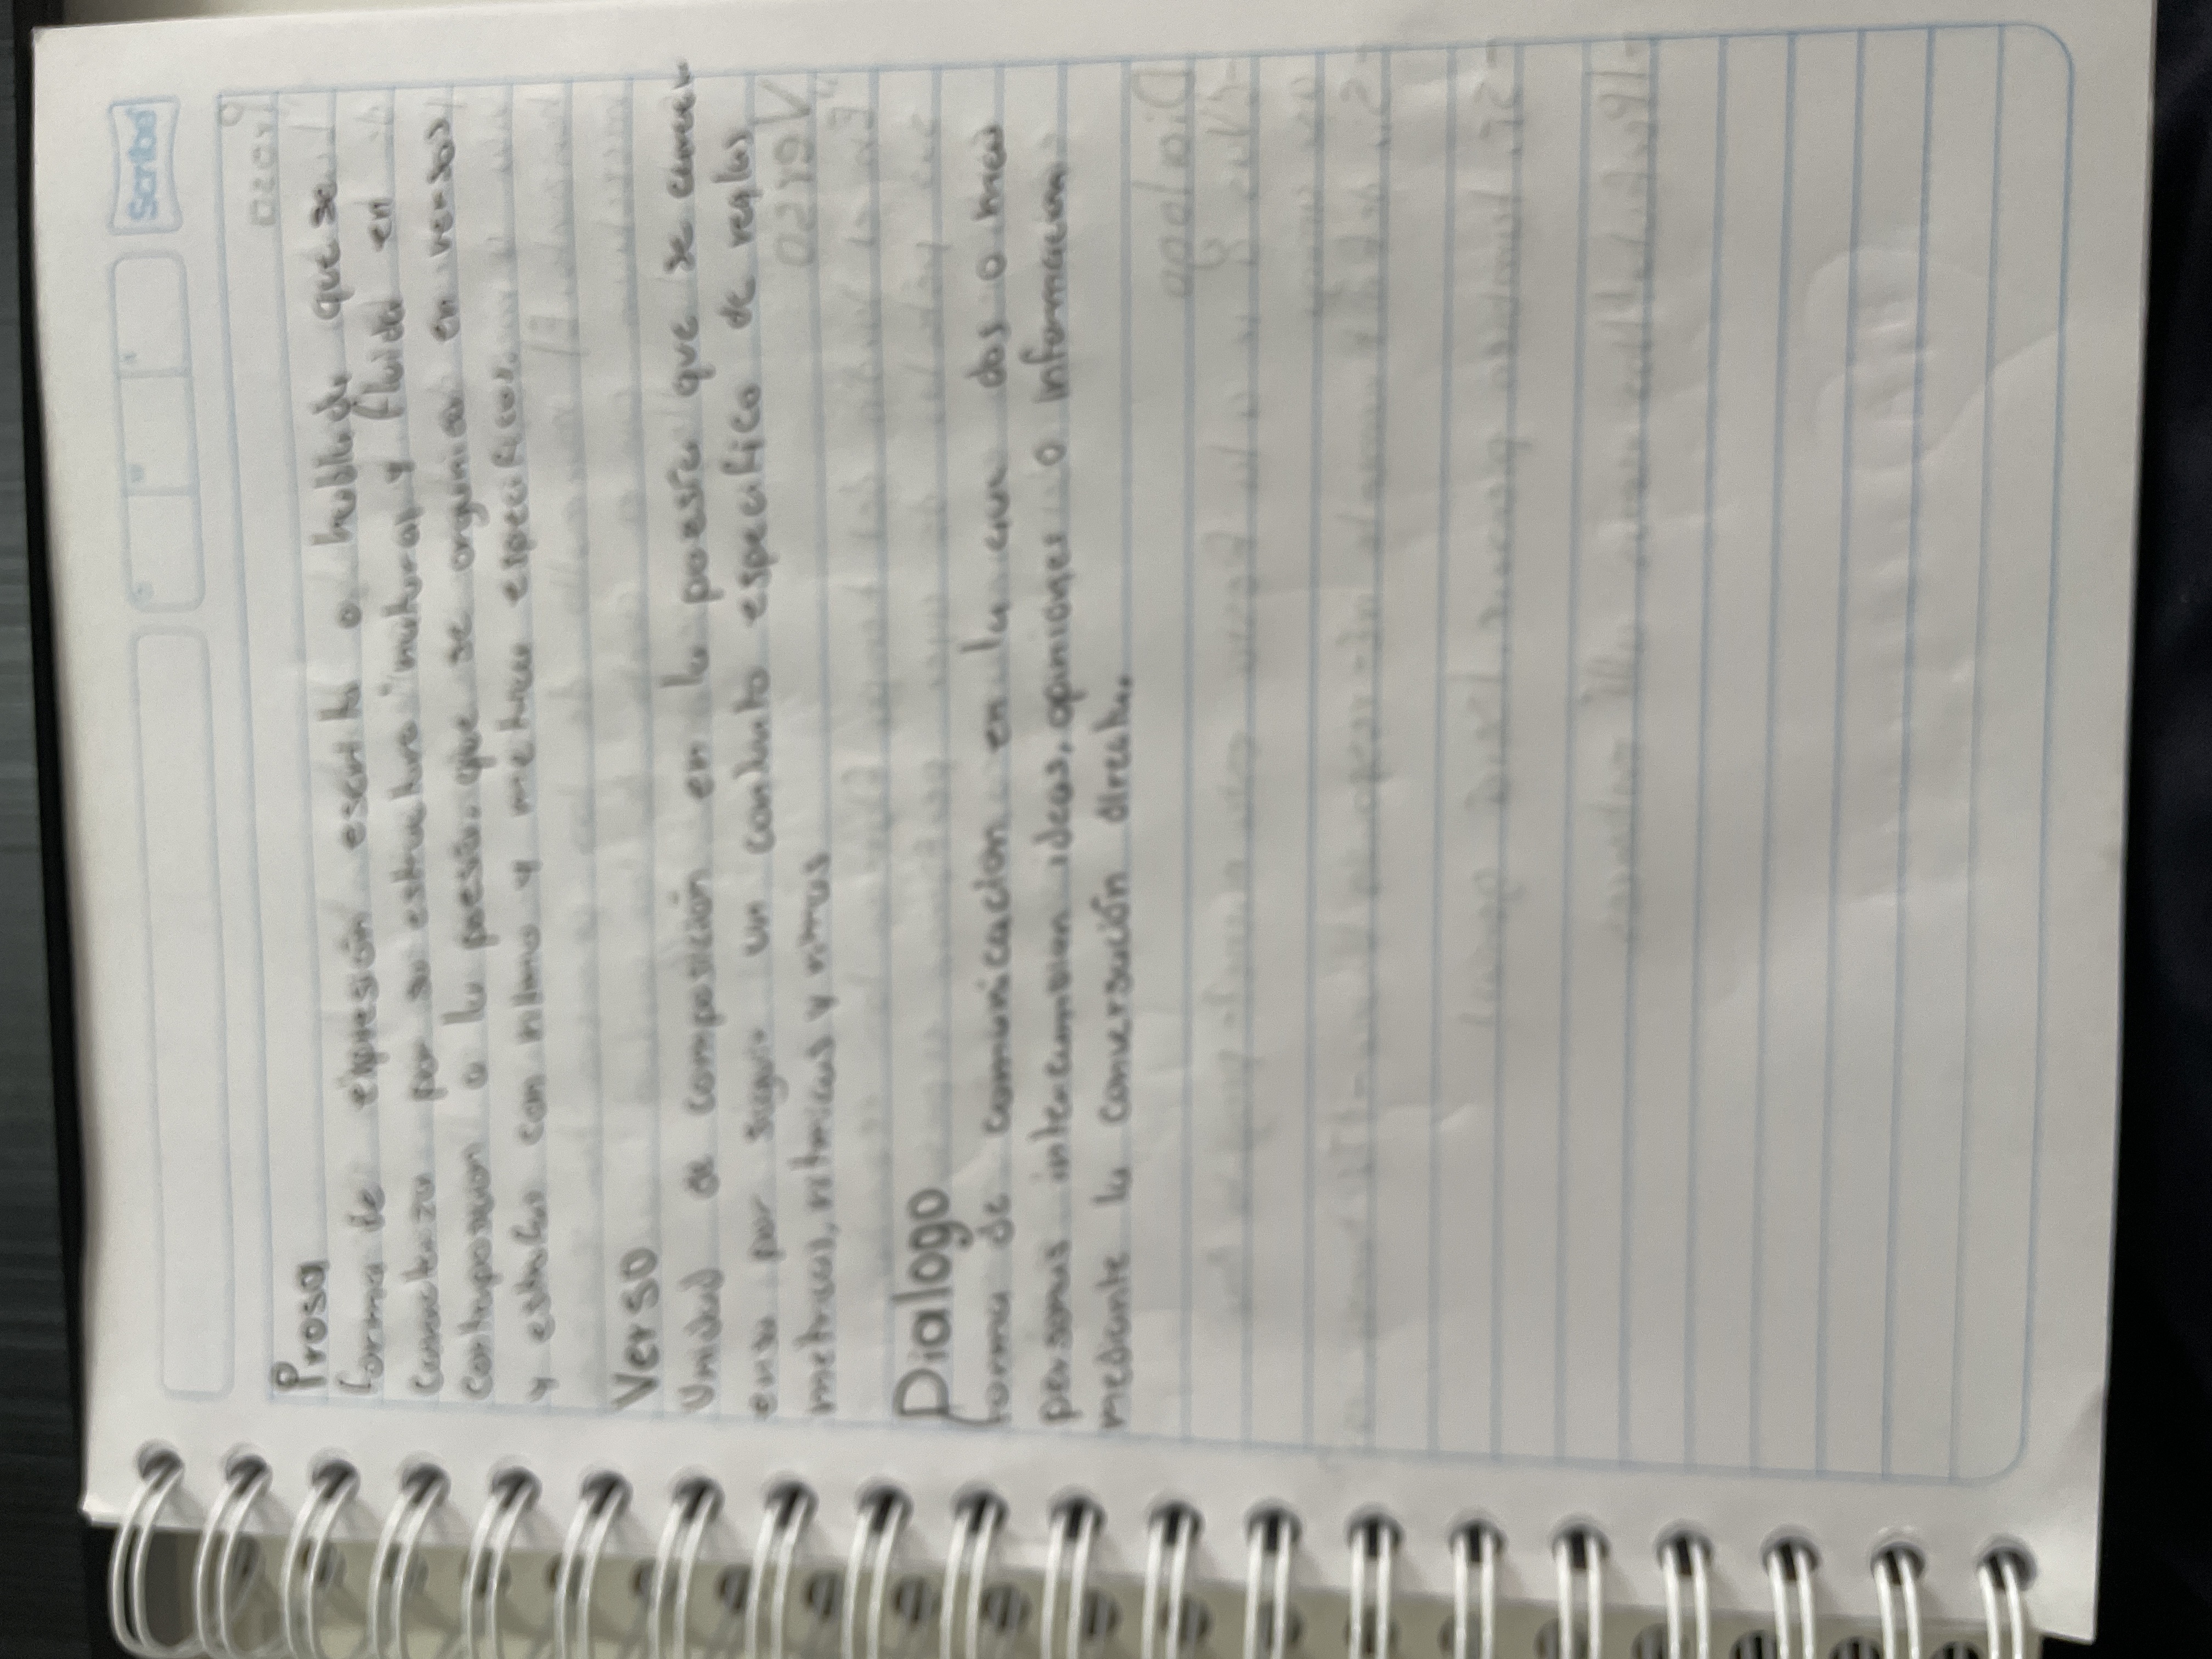 Scribe
Prosa
forma de expresión escrita o hablada que se
caracteriza por su estructura "natural y fluida en
contraposicion a la poesia, que se organiza en versos
y estrofas con ritmo y metrica especificos.
Verso
Unidad de composición en la poesía que se caract
eriza por seguir un conjunto especifico de reglas
metricas, ritmicas y rimas
Dialogo
forma de comunicacion en la cual dos o mas
personas intercambian ideas, opiniones o informacion
mediante la conversación directa.